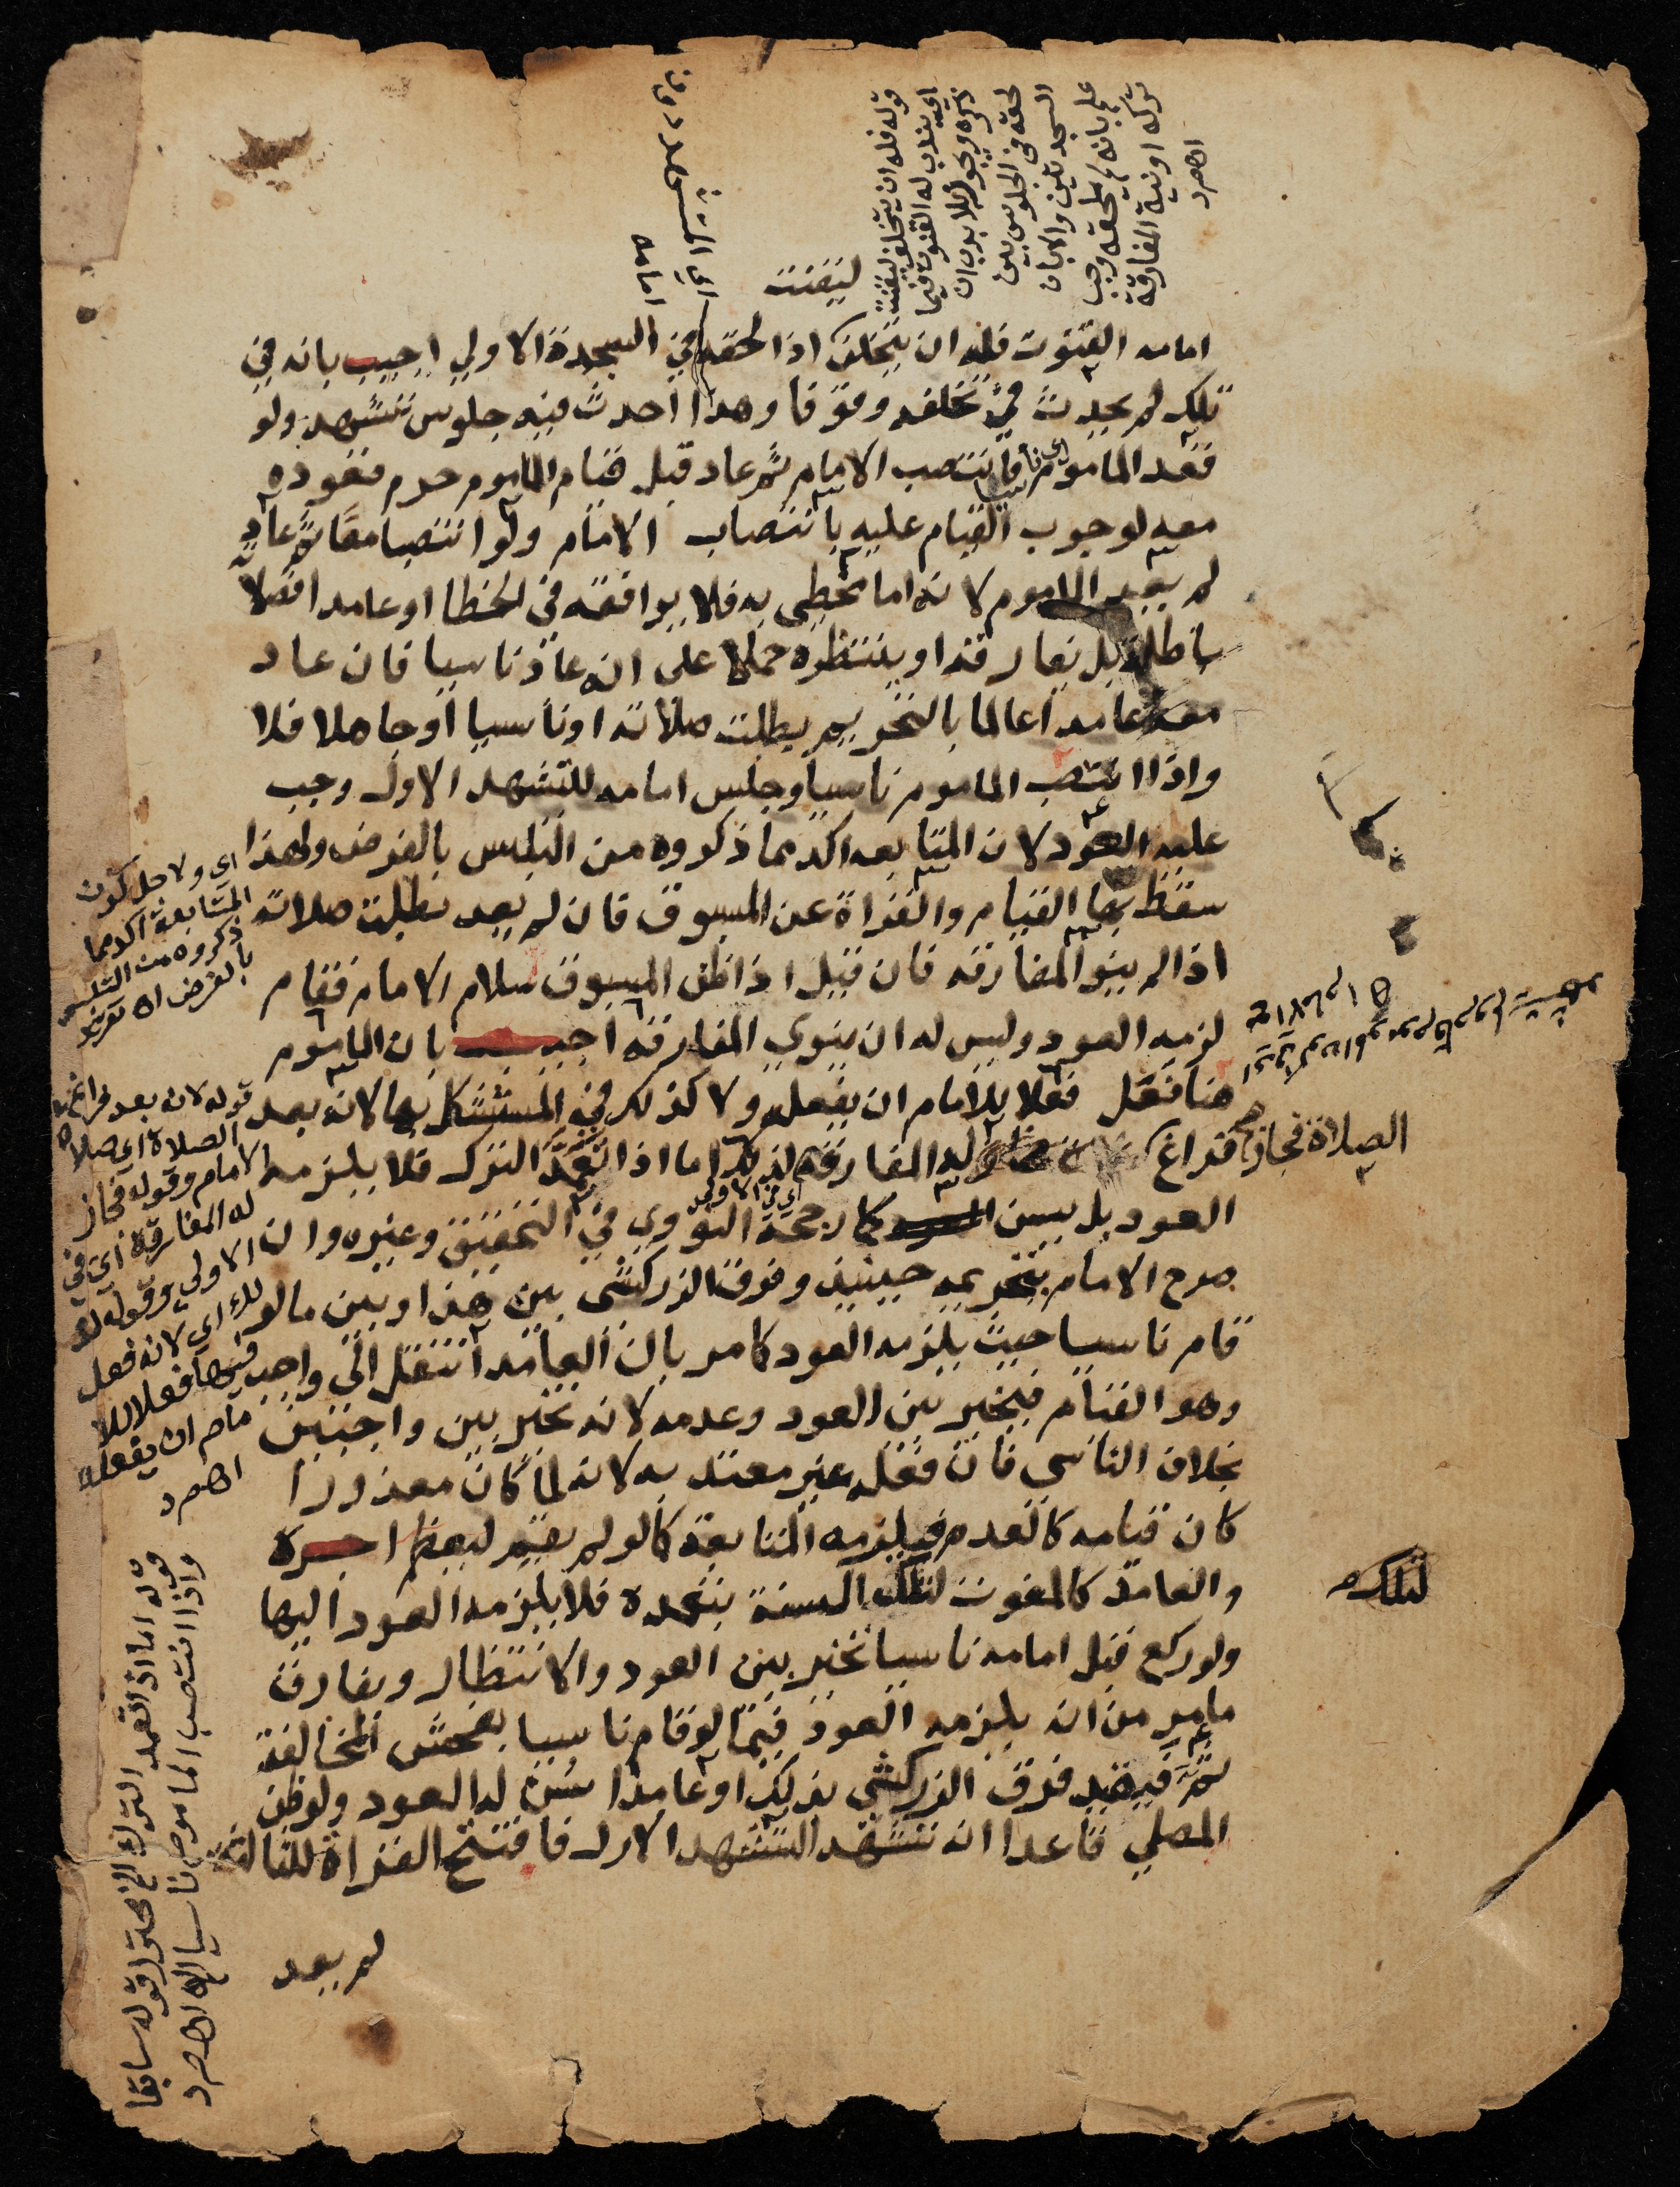 امامه القنوت فله ان يتخلف اذا لحقه في السجدة الاولي اجيب بانه في
تلك لم يحدث في تخلفه وقوفا وهذا احدث فيه جلوس تشهد ولو
قعد الماموم فانتصب الامام ثم عاد قبل قيام الماموم حرم قعوده
معه لوجوب القيام عليه بانتصاب الامام ولو انتصبا معا ثم عاد
لم يعد الماموم لانه اما مخطي به فلا يوافقه في الخطا او عامد افصلاته
باطلة بل يفارقه او ينتظره حملا على انه عاد ناسيا فان عاد
معه عامدا عالما بالتحريم بطلت صلاته او ناسيا او جاهلا فلا
واذا انتصب الماموم ناسيا وجلس امامه للتشهد الاول وجب
عليه العود لان المتابعه اكد مما ذكروه من التلبس بالفرض ولهذا
سقط بها القيام والقراة عن المسبوق فان لم يعد بطلت صلاته
اذا لم ينو المفارقه فان قيل اذا ظن المسبوق سلام الامام فقام
لزمه العود وليس له ان ينوي المفارقه اجيب بان الماموم
هنا فعل فعلا للامام ان يفعله ولا كذلك في المستشكل بها لانه بعد
فراغ الصلاة فجاز له المفارقه لذلك اما اذا تعمد الترك فلا يلزمه
العود بل يسن كما رجحه النووي في التحقيق وغيره وان
صرح الامام بتحريمه حينيذ وفرق الزركشي بين هذا وبين مالو
قام ناسيا حيث يلزمه العود كامر بان العامد انتقل الى واجب
وهو القيام فيخير بين العود وعدمه لانه تخير بين واجبين
بخلاف الناسي فان فعله غير معتد به لانه لما كان معذورا
كان قيامه كالعدم فيلزمه المتابعة كالو لم يقم ليعظم اجره
والعامد كالمفوت لتلك السنة بتعمده فلا يلزمه العود اليها
ولو ركع قبل امامه ناسيا تخير بين العود والانتظار ويفارق
مامر من انه يلزمه العود فيما لو قام ناسيا بفحش المخالفة
ثمة فيقيد فرق الزركشي بذلك او عامدا سن له العود ولو ظن
المصلي قاعدا انه تشهد التشهد الاول فافتتح القراة للثالثة
لم يعد
ليقنت
قوله فله ان يتخلف ليقنت
اي يندب له القنوت فيما
ذكره ويجوز للابد ان
لحقه في الجلوس بين
السجدتين والا بان
علم بانه لم يلحقه وجب
تركه او نية المفارقة
اهم د
امامه
اي ولاجل كون
المتابعة اكد مما
ذكروه من التلبس
بالفرض اه
قوله لانه بعد فراغ
الصلاة اي صلاة
الامام وقوله فجاز
له المفارقة اي في
الاولي وقوله
لذلك اي لانه فعل
فيها فعلا للا
مام ان يفعله
اهم د
قوله اما اذا تعمد الترك الخ محترز قوله سابقا
واذا انتصب الماموم ناسيا الخ اهم د
لتلك